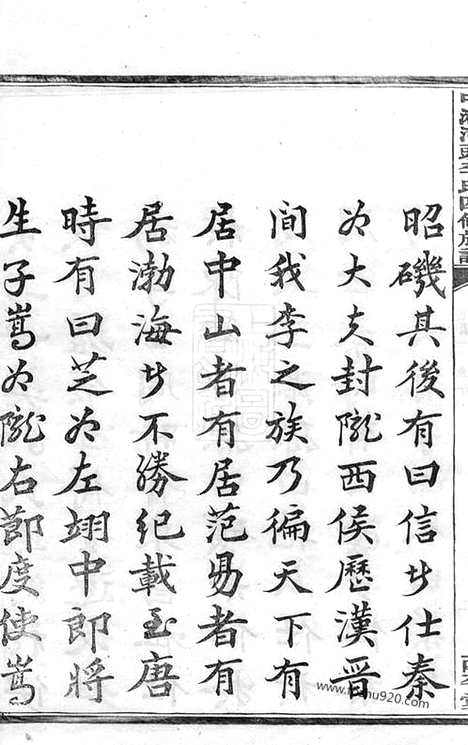 昭磯其後有曰信者仕秦
為大夫封隴西侯歷漢晉
間我李之族乃徧天下有
居中山者有居范昜者有
居渤海者不勝紀載至唐
時有曰芝為左翊中郎將
生子嵩為隴右節度使嵩